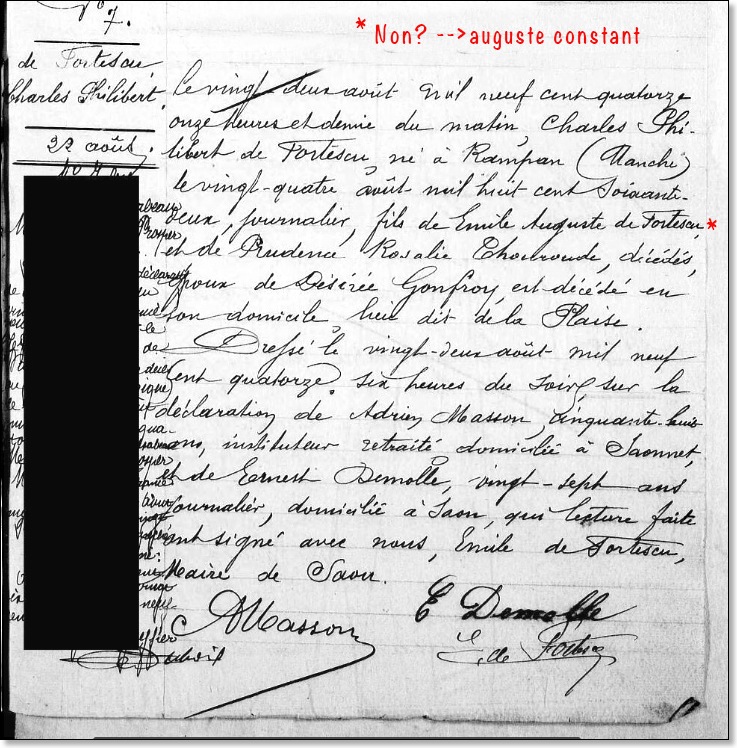 * Non? -->auguste constant
N° 7.
de Fortescu,
Charles Philibert.
22 août.
Le vingt deux août mil neuf cent quatorze
onze heures et demie du matin, Charles Phi-
libert de Fortescu, né à Rampan (Manche)
le vingt-quatre août mil huit cent soixante-
deux, journalier, fils de Emile Auguste de Fortescu, *
et de Prudence Rosalie décédés,
époux de Désirée Gonfroy, est décédé en
son domicile lieu dit de la Plaise.
Dressé le vingt-deux août mil neuf
cent quatorze, six heures du soir, sur la
déclaration de Adrien Masson, cinquante-huit
ans, instituteur retraité domicilié à Saonnet,
et de Ernest Demolle, vingt-sept ans
journalier, domicilié à Saon, qui lecture faite
ont signé avec nous, Emile de Fortescu,
Maire de Saon.
AMasson
E Demolle
E. de Fortescu